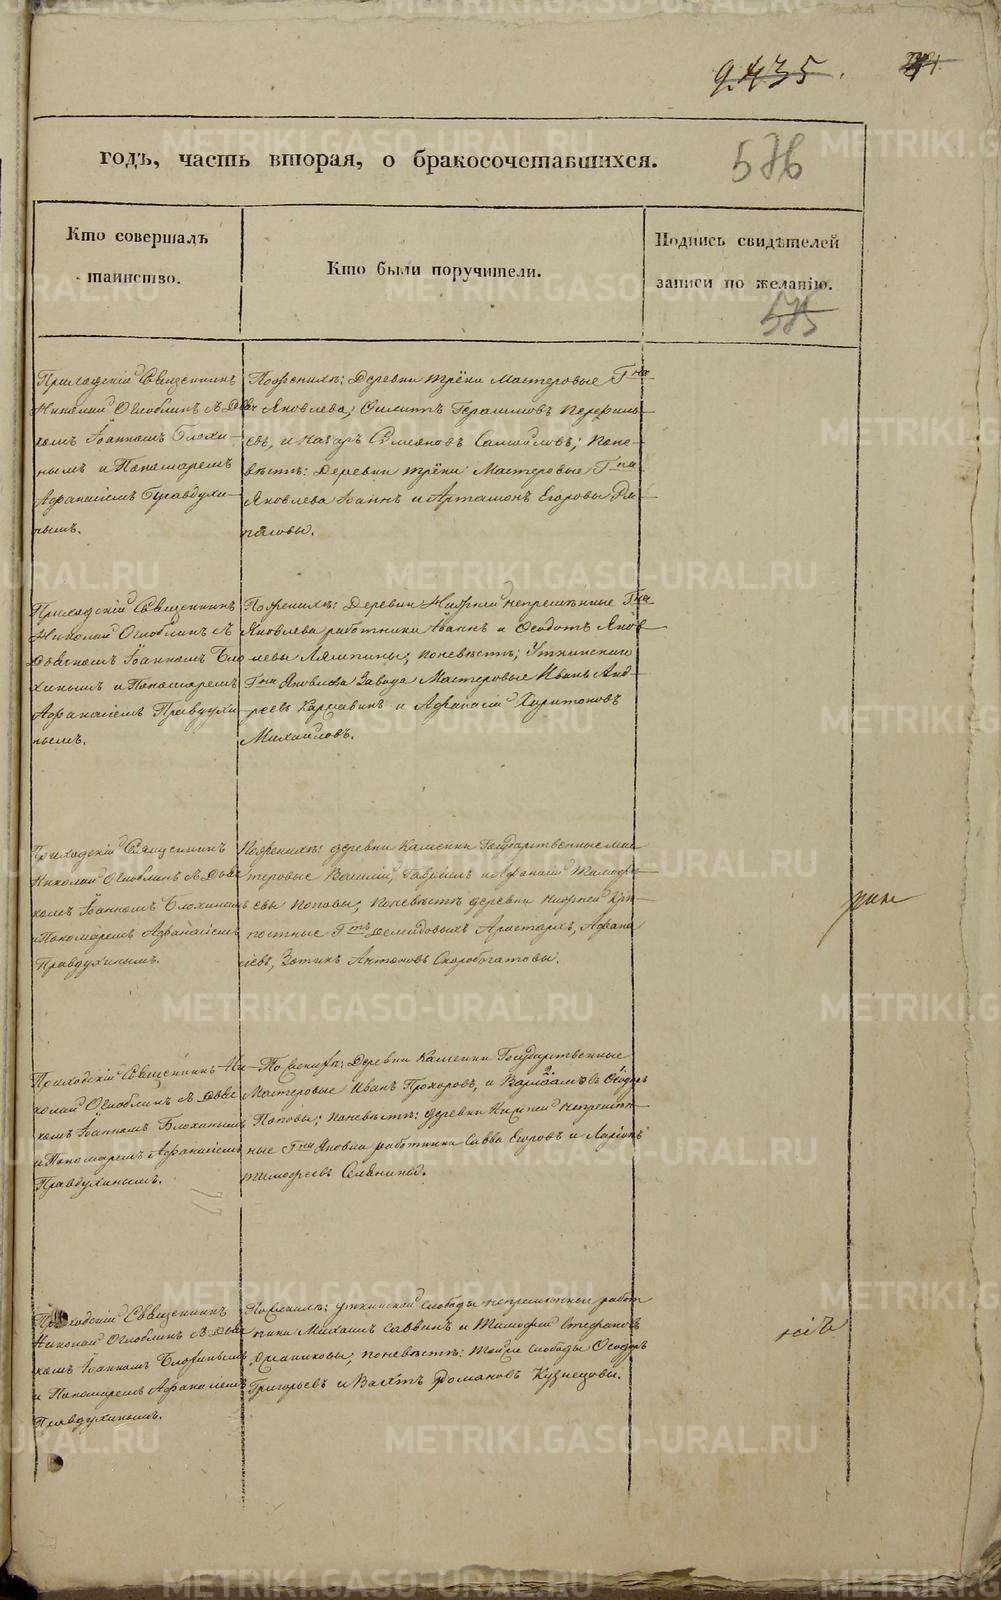 9.435.
годъ, часть вторая, о бракосочетавшихся.
576
Кто совершалъ
таинство.
Кто были поручители.
Подпись свидѣтелей
записи по желанію.
575
Приходскій Священникъ
Николай Оглоблинъ съ Дья
комъ Іоанномъ Блохи-
нымъ и Пономаремъ
Афанасіемъ Правдухи-
нымъ.
По женихѣ: Деревни Трёки Мастеровые Гна
Яковлева, Филитъ Герасимовъ Перфиль
евъ, и Назаръ Симоновъ Самойловъ; по не-
вѣстѣ: Деревни Трёки Мастеровые Гна
Яковлева Іоаннъ и Артамонъ Егоровы
Приходскій Священникъ
Николай Оглоблинъ съ
Дьячкомъ Іоанномъ Бло
хинымъ и Пономаремъ
Афанасіемъ Правдухи
нымъ.
По женихѣ: Деревни Нижней непремѣнные Гна
Яковлева работники Іваннъ и Ѳеодотъ Яков
левы Лямпины; по невѣстѣ; Уткинскаго
Гна Яковлева Завода Мастеровые Иванъ Анд-
реевъ Каргавинъ и Афанасій Харитоновъ
Михайловъ.
Приходскій Священникъ
Николай Оглоблинъ съ Дьяч
комъ Іоанномъ Блохинымъ
и Пономаремъ Афанасіемъ
Правдухинымъ.
По женихѣ: деревни Каменки Государственные мас
теровые Василій, Гавріилъ и Афанасій Тимофе-
евы Поповы; по невѣстѣ деревни Нижней Крѣ-
постные Гтъ Демидовыхъ Аристархъ, Афана
сіевъ, Зотикъ Антоновъ Скоробогатовы.
Приходскій Священникъ Ни-
колай Оглоблинъ съ Дьяч
комъ Іоанномъ Блохинымъ
и Пономаремъ Афанасіемъ
Правдухинымъ.
По женихѣ: Деревни Каменки Государственные
Мастеровые Иванъ Прохоровъ, и Варлаамъ Ѳедоровъ
Поповы; по невѣстѣ: деревни Нижней непремѣн-
ные Гна Яковлева работники Савва Егоровъ и Ларіонъ
Тимофеевъ Селянины.
Приходскій Священникъ
Николай Оглоблинъ съ Дьяч
комъ Іоанномъ Блохинымъ
и Пономаремъ Афанасіемъ
Правдухинымъ.
По женихѣ: Уткинской слободы непремѣнные работ
ники Михаилъ Саввинъ и Тимофей Стефановъ
по невѣстѣ: Той же слободы Ѳеодоръ
Григорьевъ и Романовъ Кузнецовы.
METRIKI.GASO-URAL.RU